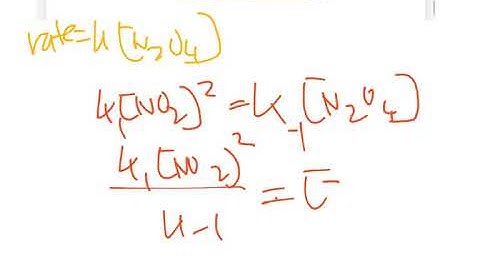 rate=k[N2O4]
k1[NO2]^2=k-1[N2O4]
k1[NO2]^2
k-1
=[